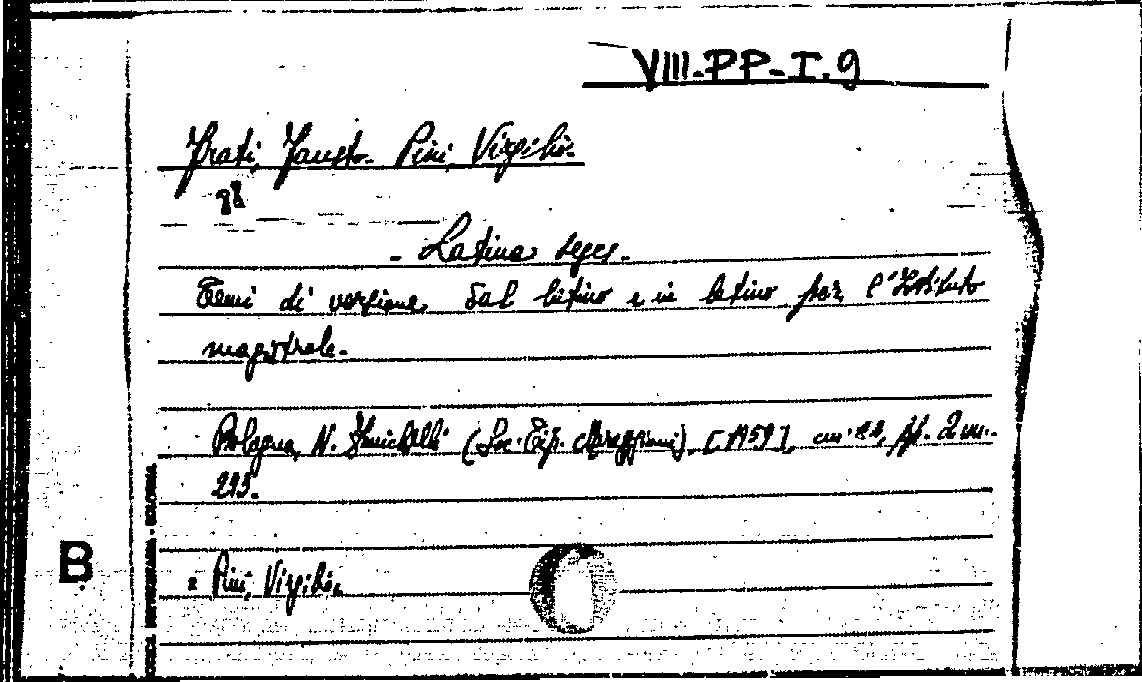 VIII-PP-I.9
Frati, Fausto- Pini, Virgilio-
- Latina seges -
Temi di versione dal latino e in latino per l'Istituto
magistrale-
Bologna, N. Zanichelli (Soc. Tip. Mareggiani), [1959], in 8°, pp. 2 nn.
293.
= Pini, Virgilio.
B